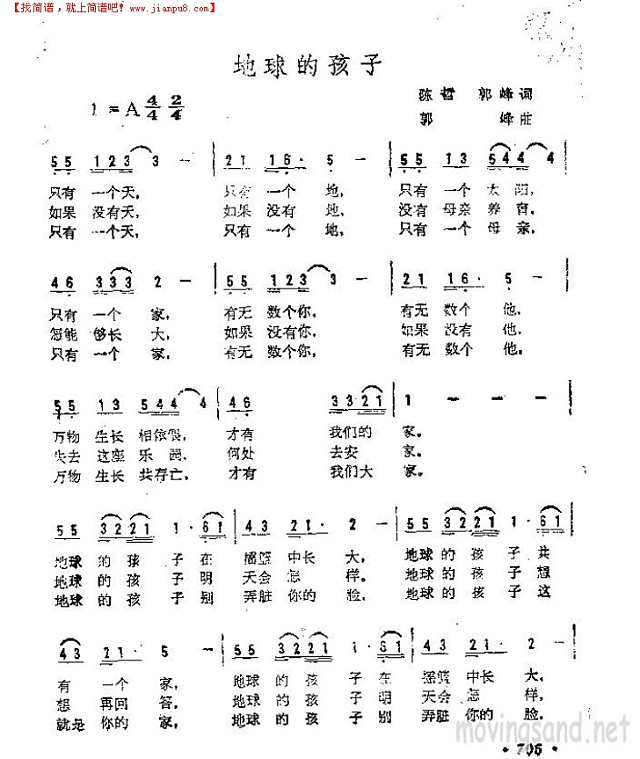 【找简谱，就上简谱吧! www.jianpu8.com】
地球的孩子
1=A 4/4 2/4
陈哲 郭峰词
郭 峰曲
55 123 3 - 21 16· 5 - 55 13 544 4
只有 一个天, 只有 一个 地, 只有 一个 太阳,
如果 没有天, 如果 没有 地, 没有 母亲 养育,
只有 一个天, 只有 一个 地, 只有 一个 母亲,
46 333 2 - 55 123 3 - 21 16· 5 -
只有 一个 家, 有无 数个你, 有无 数个 他,
怎能 够长 大, 如果 没有你, 如果 没有 他,
只有 一个 家, 有无 数个你, 有无 数个 他,
55 13 544 4 46 3321 1 - - -
万物 生长 相依偎, 才有 我们的 家。
失去 这座 乐园, 何处 去安 家。
万物 生长 共存亡, 才有 我们大 家。
55 3221 1·61 43 021 2 - 55 3221 1·61
地球 的 孩 子 在 摇篮 中长 大, 地球 的 孩 子 共
地球 的 孩 子 明 天会 怎 样。 地球 的 孩 子 想
地球 的 孩 子 别 弄脏 你的 脸, 地球 的 孩 子 这
43 211 5 - 55 3221 1·61 43 021 2 -
有 一个 家, 地球 的 孩 子 在 摇篮 中长 大,
想 再回 答, 地球 的 孩 子 明 天会 怎 样,
就是 你的 家, 地球 的 孩 子 别 弄脏 你的 脸,
movingsand.net